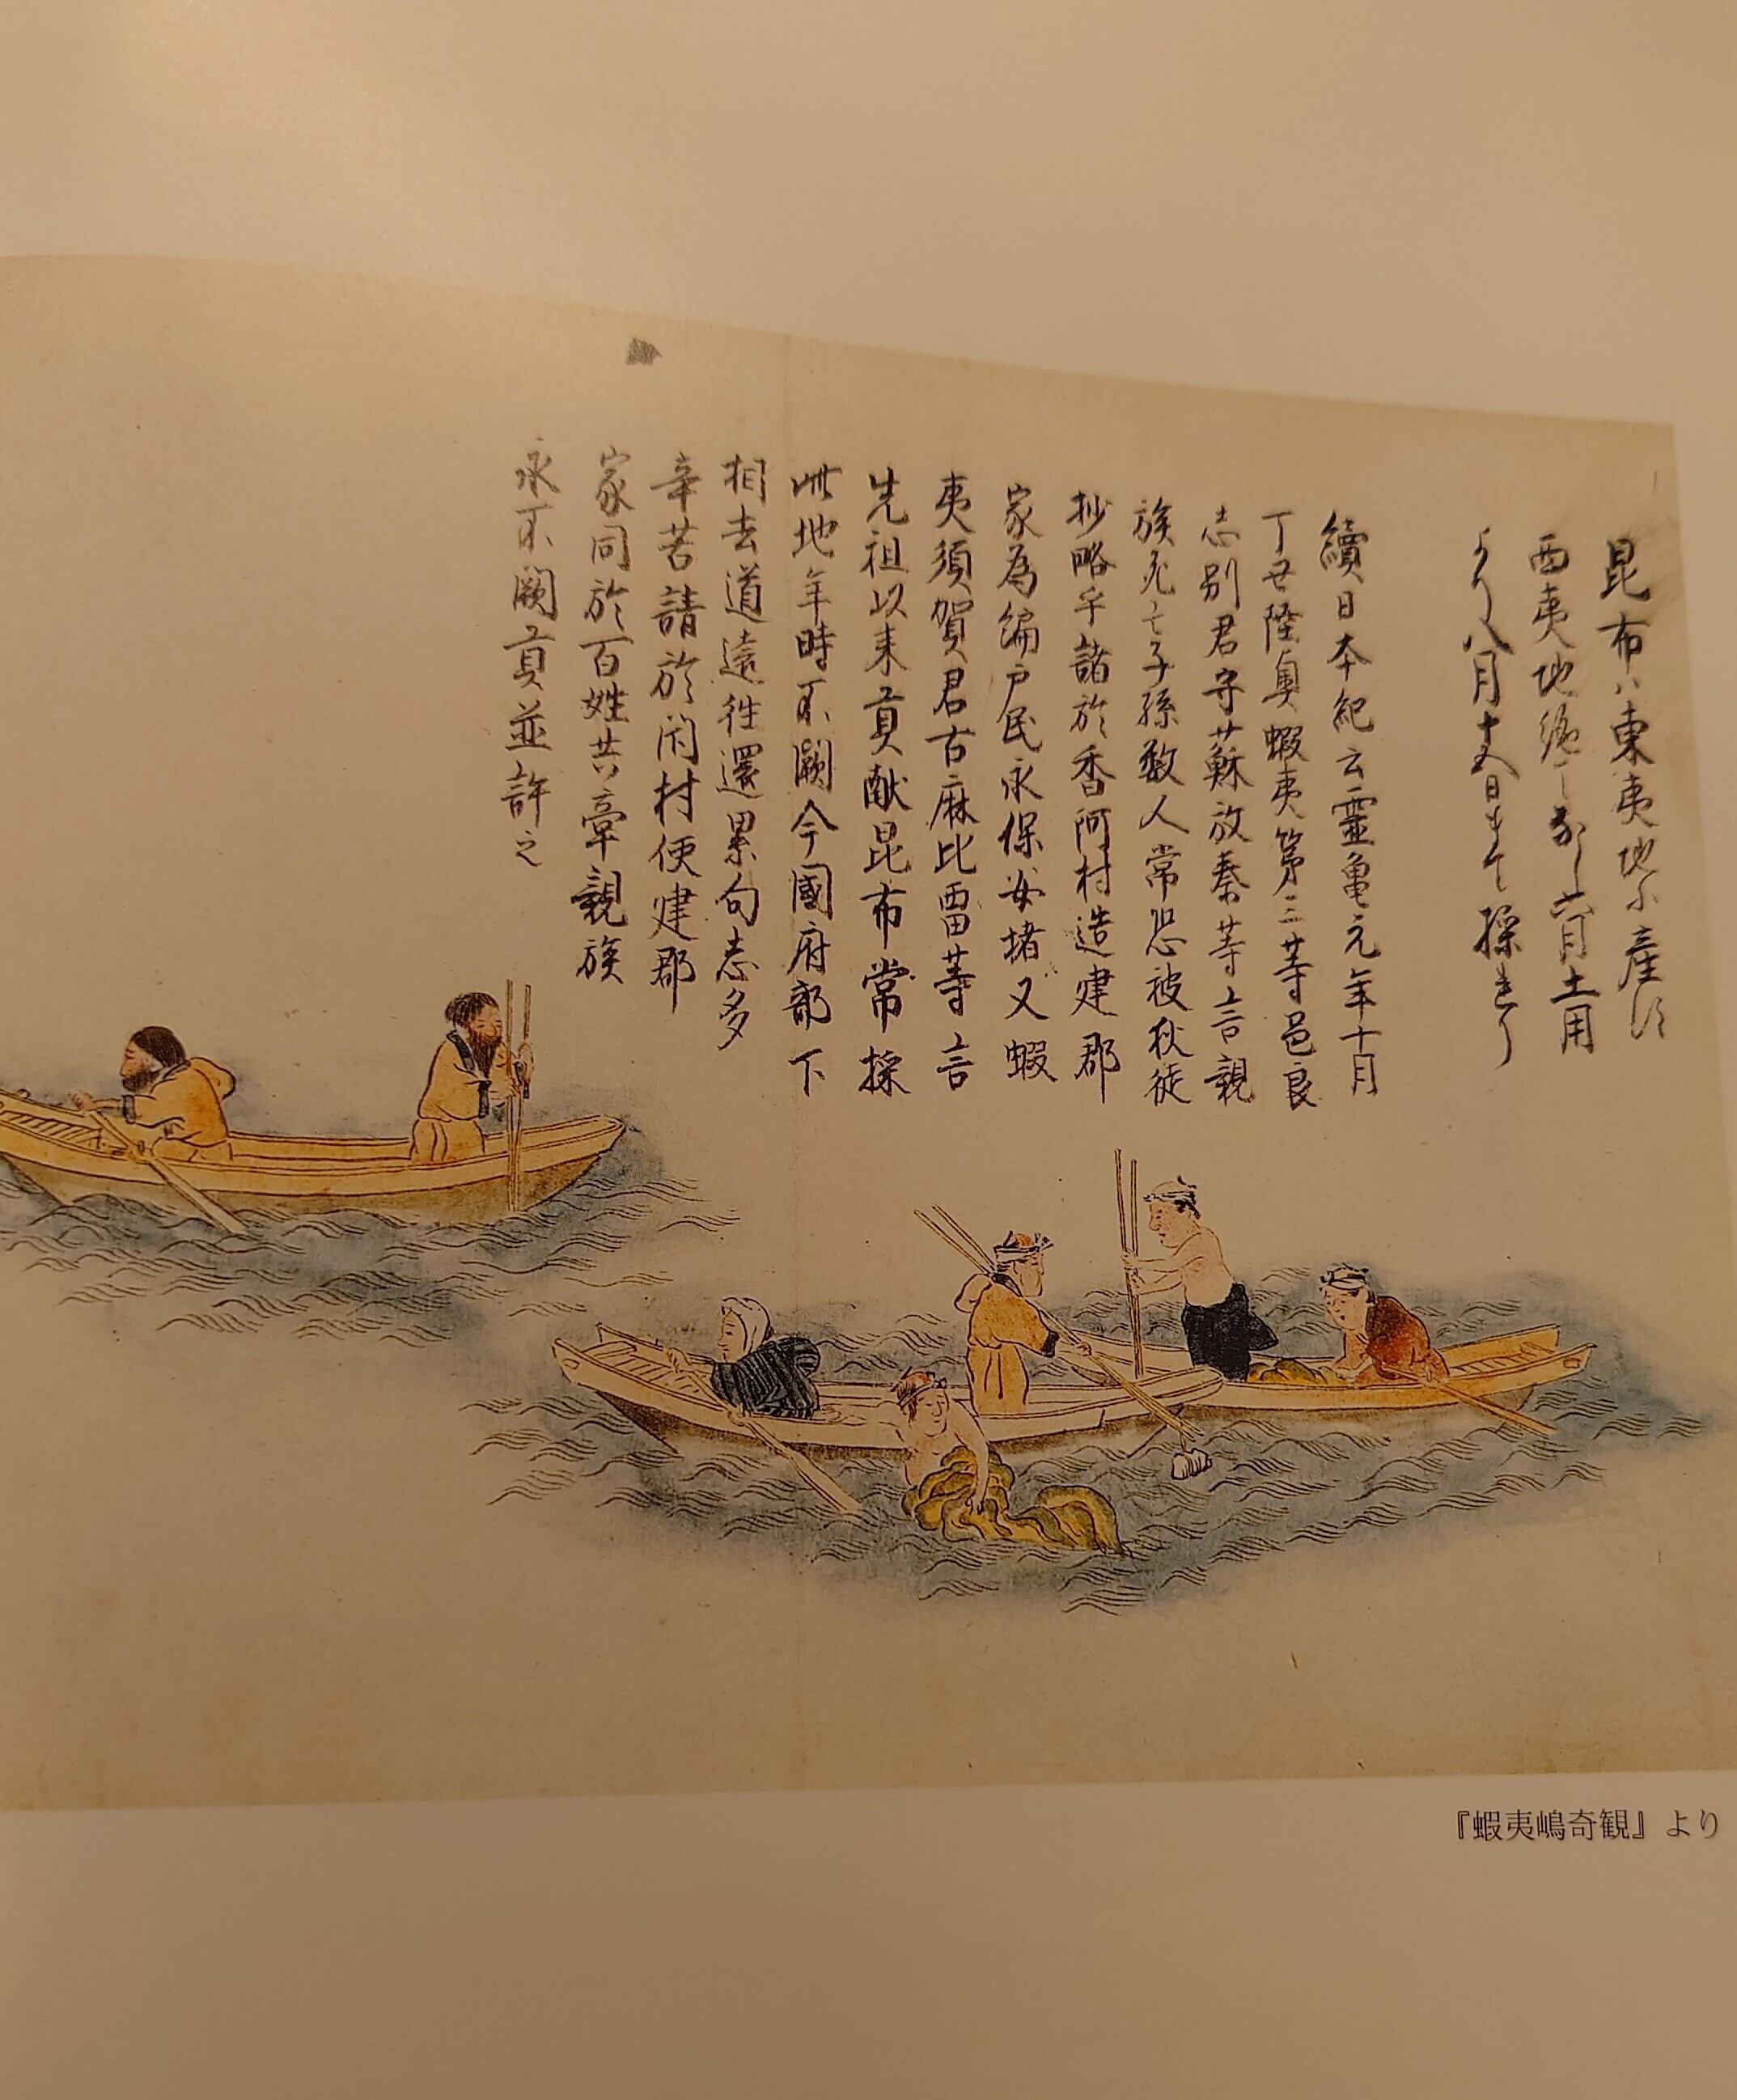 昆布ハ東夷地ニ産ス
西夷地絶てなし六月土用
より八月十五日まて採るなり
續日本紀云靈亀元年十月
丁丑陸奥蝦夷第三等邑良
志別君宇蘇弥奈等言親
族死亡子孫数人常恐被狄徒
抄略乎請於香阿村造建郡
家為編戸民永保安堵又蝦
夷須賀君古麻比留等言
先祖以来貢献昆布常採
此地年時不闕今國府郭下
相去道遠往還累旬志多
辛苦請於閇村便建郡
家同於百姓共率親族
永不闕貢並許之
『蝦夷嶋奇観』より